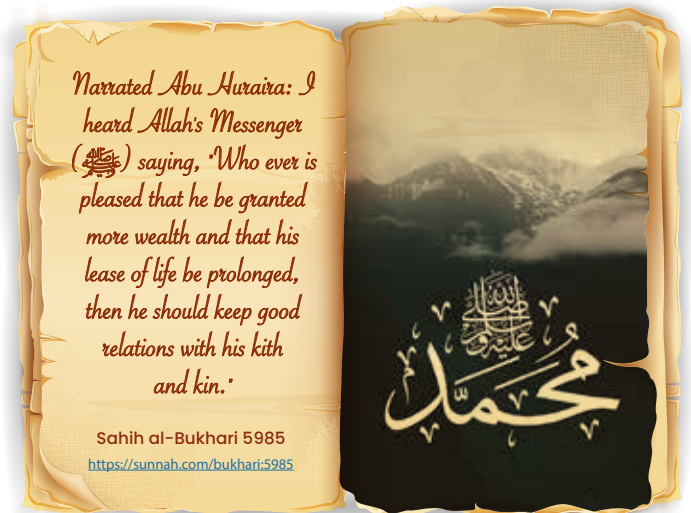 Narrated Abu Huraira: I
heard Allah's Messenger
(ﷺ) saying, "Who ever is
pleased that he be granted
more wealth and that his
lease of life be prolonged,
then he should keep good
relations with his kith
and kin."
Sahih al-Bukhari 5985
https://sunnah.com/bukhari:5985
صلى الله عليه وسلم
محمد